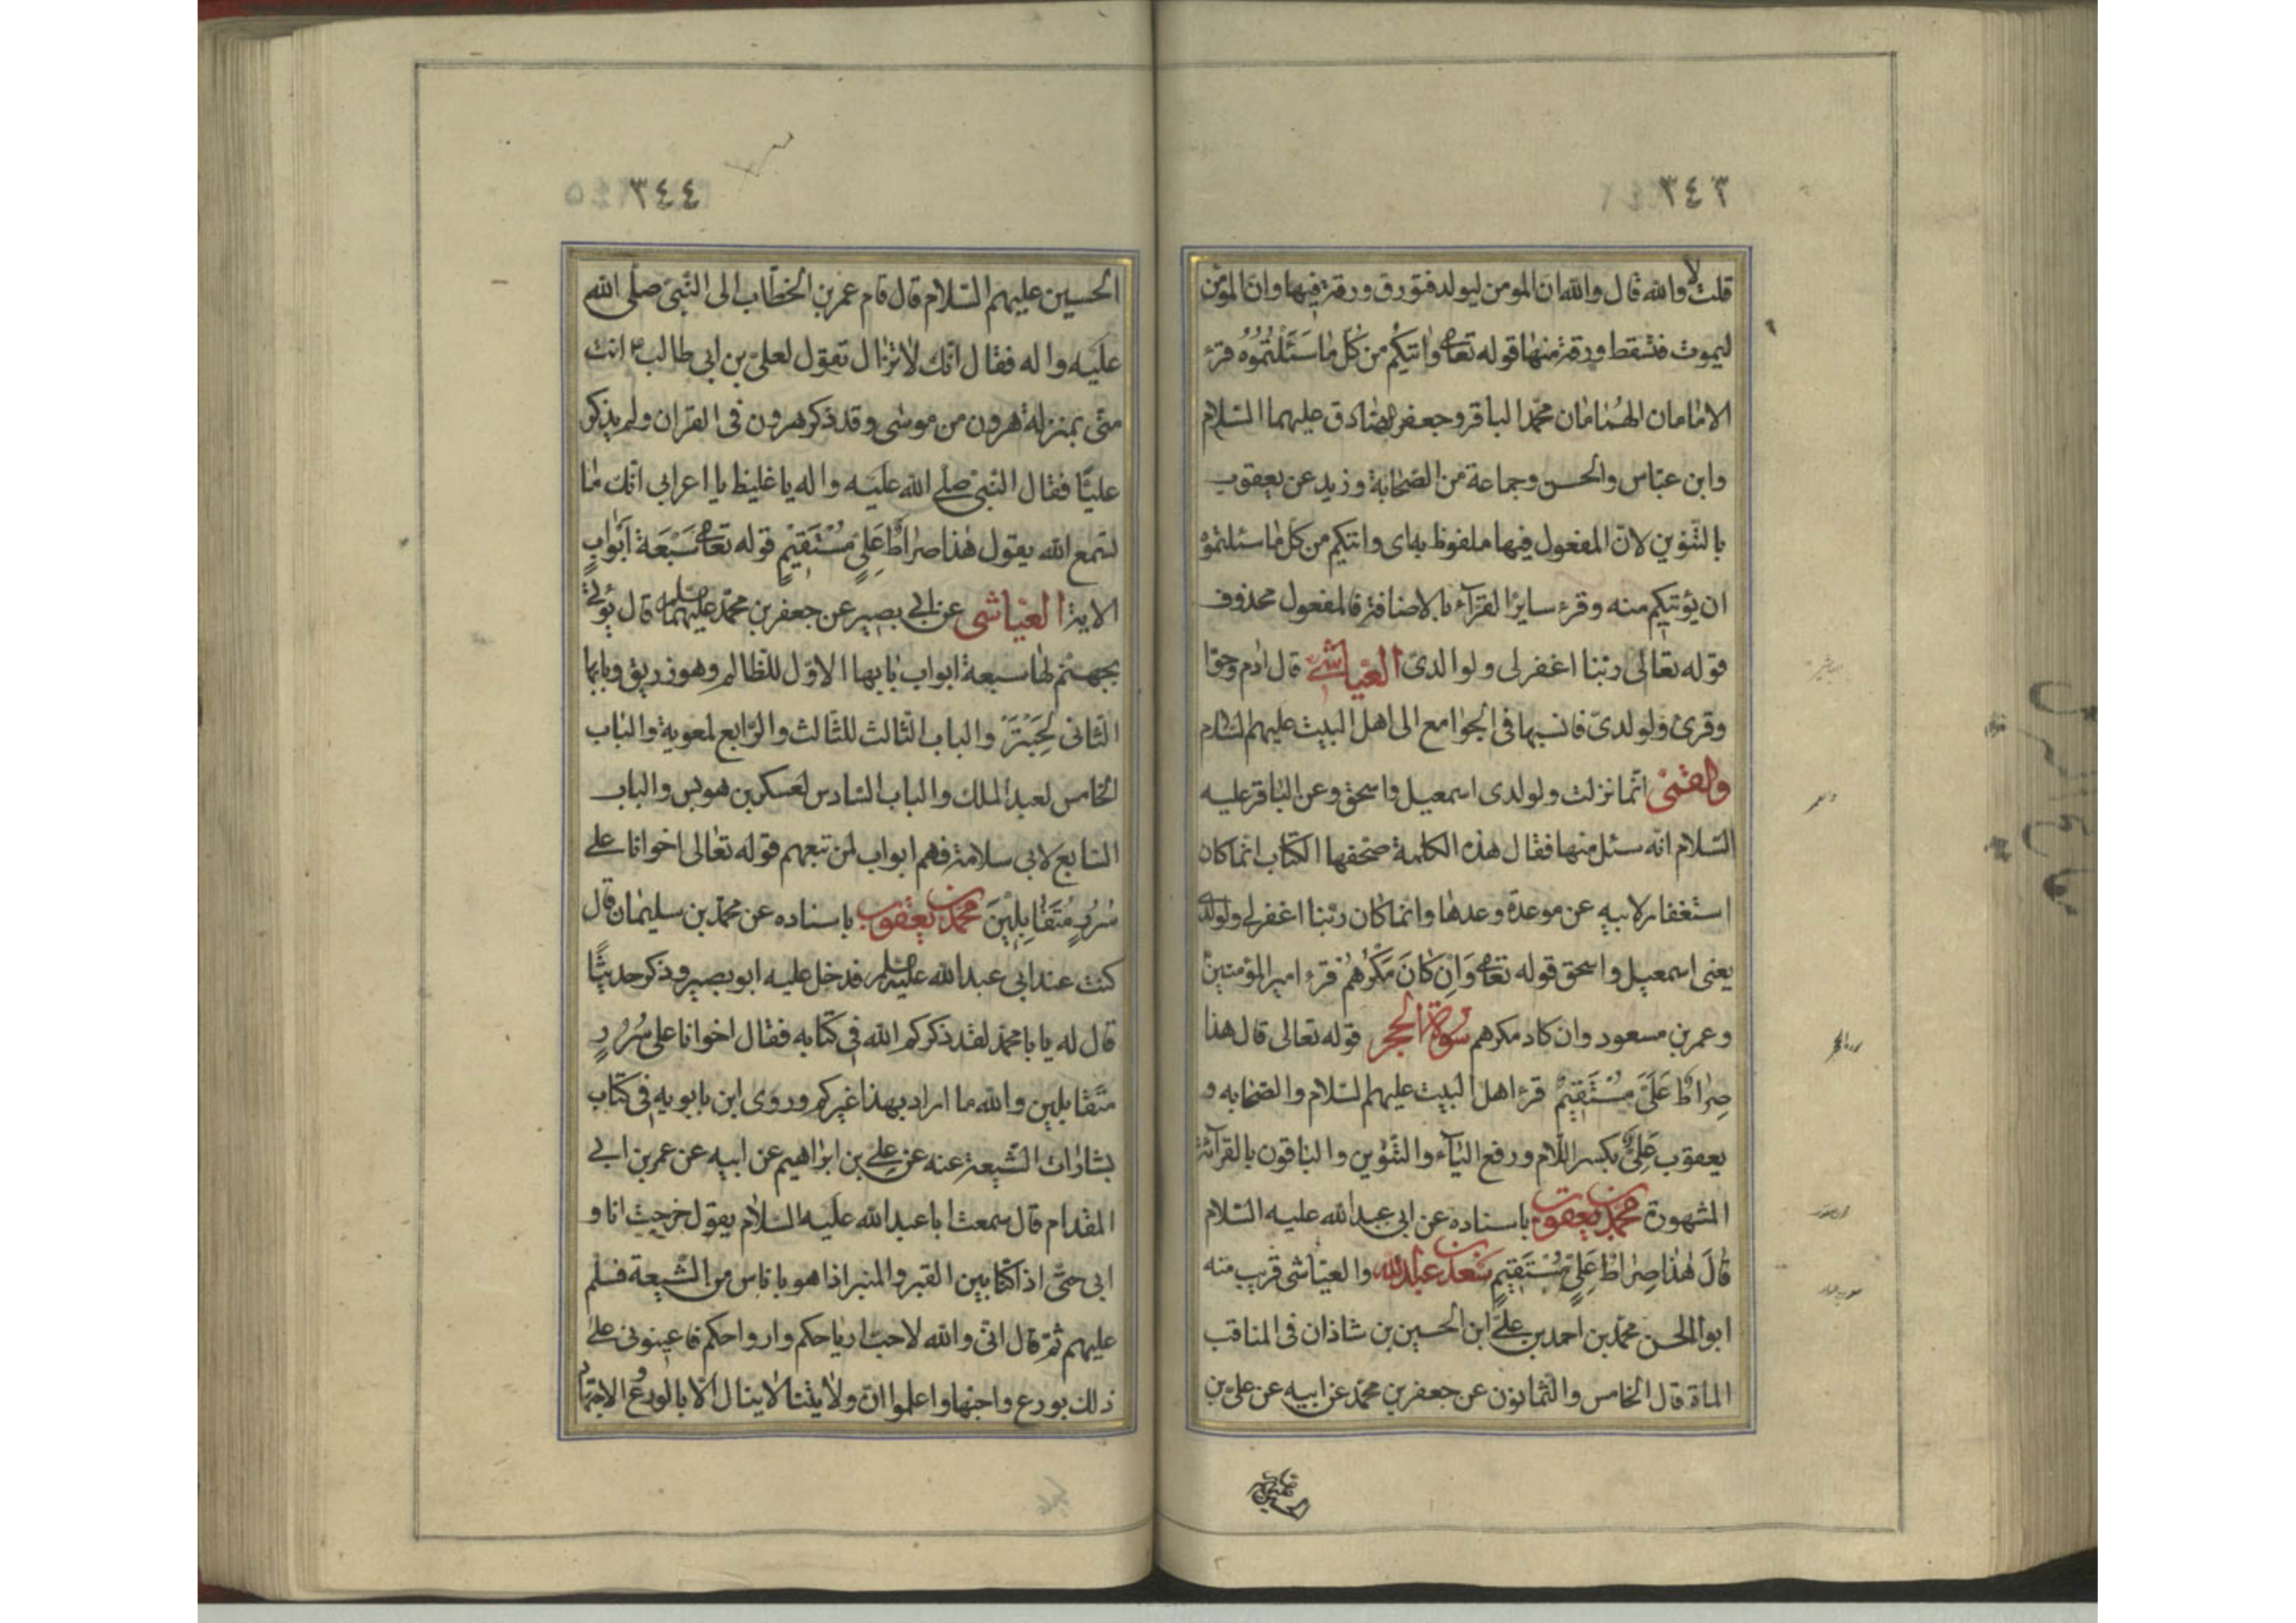 ٣٤٣
قلت لا والله قال والله ان المومن ليولد فتورق ورقة فيها وان المؤمن
ليموت فتسقط ورقة منها قوله تعالى واتيكم من كل ما سئلتموه قرء
الامامان الهمامان محمد الباقر وجعفر الصادق عليهما السلام
وابن عباس والحسن وجماعة من الصحابة وزيد عن يعقوب
بالتنوين لان المفعول فيها ملفوظ به اى واتيكم من كل ما سئلتموه
ان يؤتيكم منه وقرء ساير القرآء بالاضافة فالمفعول محذوف
قوله تعالى ربنا اغفر لى ولوالدى العياشي قال ادم وحوا
وقرئ ولولدى فانسبها فى الجوامع الى اهل البيت عليهم السلام
والقمى انما نزلت ولولدى اسمعيل واسحق وعن الباقر عليه
السلام انه سئل منها فقال هذه الكلمة صحفها الكتاب انما كان
استغفار لابيه عن موعدة وعدها وانما كان ربنا اغفر لي ولولدى
يعنى اسمعيل واسحق قوله تعالى وَاِن كَانَ مَكْرُهُمْ قرء امير المؤمنين
وعمر بن مسعود وان كاد مكرهم سورة الحجر قوله تعالى قال هذا
صِرَاطٌ عَلَىَّ مُسْتَقِيمٌ قرء اهل البيت عليهم السلام والصحابه و
يعقوب عَلِىٌّ بكسر اللام ورفع اليآء والتنوين والباقون بالقرآئة
المشهورة محمد بن يعقوب باسناده عن ابى عبد الله عليه السلام
قال هٰذا صِرَاطُ عَلِىٍّ مُسْتَقِيمٍ سعد بن عبد الله والعياشى قريب منه
ابو الحسن محمد بن احمد بن علي ابن الحسين بن شاذان فى المناقب
المأة قال الخامس والثمانون عن جعفر بن محمد عن ابيه عن على بن
٣٤٤
الحسين عليهم السلام قال قام عمر بن الخطاب الى النبى صلى الله
عليه واله فقال انك لا تزال تقول لعلى بن ابى طالب انت
منى بمنزلة هرون من موسى وقد ذكر هرون فى القران ولم يذكر
عليا فقال النبى صلى الله عليه واله يا غليظ يا اعرابى انك ما
تسمع الله يقول هٰذا صراطُ عَلِىٍّ مُسْتَقِيْمٍ قوله تعالى سَبْعَة اَبْوَابٍ
الاية العياشى عن ابي بصير عن جعفر بن محمد عليهما قال يؤتى
بجهنم لها سبعة ابواب بابها الاول للظالم وهو زريق وبابها
الثانى لحبتر والباب الثالث للثالث والرابع لمعوية والباب
الخامس لعبد الملك والباب السادس لعسكر بن هوسر والباب
السابع لابى سلامة فهم ابواب لمن تبعهم قوله تعالى اخوانا على
سُرُرٍ مُتَقَابِلِيْنَ محمد بن يعقوب باسناده عن محمد بن سليمان قال
كنت عند ابى عبد الله عليه السلم فدخل عليه ابو بصير وذكر حديثًا
قال له يا با محمد لقد ذكركم الله فى كتابه فقال اخوانا على سُرُرٍ
متقابلين والله ما اراد بهذا غيركم وروى ابن بابويه فى كتاب
بشارات الشيعة عنه عن علي بن ابراهيم عن ابيه عن عمر بن ابي
المقدام قال سمعت ابا عبد الله عليه السلام يقول خرجت انا و
ابى حتى اذا كنا بين القبر والمنبر اذا هو باناس من الشيعة فسلم
عليهم ثم قال انى والله لاحب ارياحكم وارواحكم فاعينونى على
ذلك بورع واجتهاد واعلموا ان ولايتنا لا ينال الا بالورع والاجتهاد